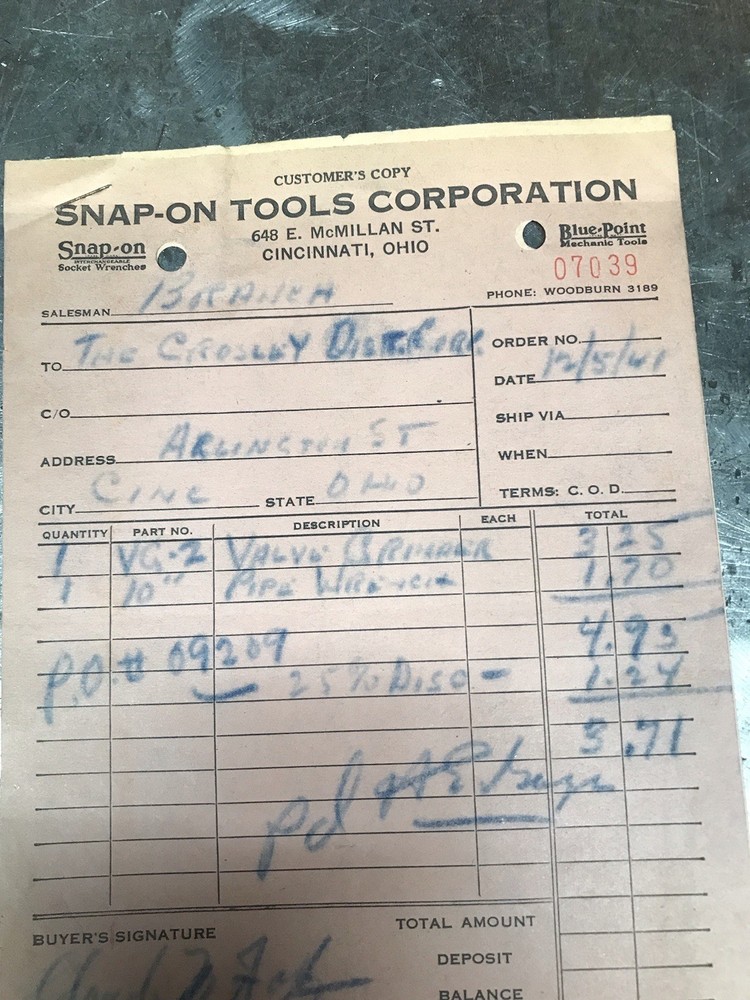 CUSTOMER'S COPY
SNAP-ON TOOLS CORPORATION
648 E. McMILLAN ST.
CINCINNATI, OHIO
Snap-on
INTERCHANGEABLE
Socket Wrenches
Blue-Point
Mechanic Tools
07039
PHONE: WOODBURN 3189
SALESMAN BRANCH
TO THE CROSLEY DIST. CORP.
ORDER NO.
DATE 12/5/41
C/O
SHIP VIA
ADDRESS ARLINGTON ST
WHEN
CITY CINC STATE OHIO
TERMS: C. O. D.
QUANTITY PART NO. DESCRIPTION EACH TOTAL
1 VG-2 VALVE GRINDER 3 25
1 10" PIPE WRENCH 1.70
4.95
P.O.# 09209
25% DISC - 1.24
3.71
pd
BUYER'S SIGNATURE
TOTAL AMOUNT
DEPOSIT
BALANCE